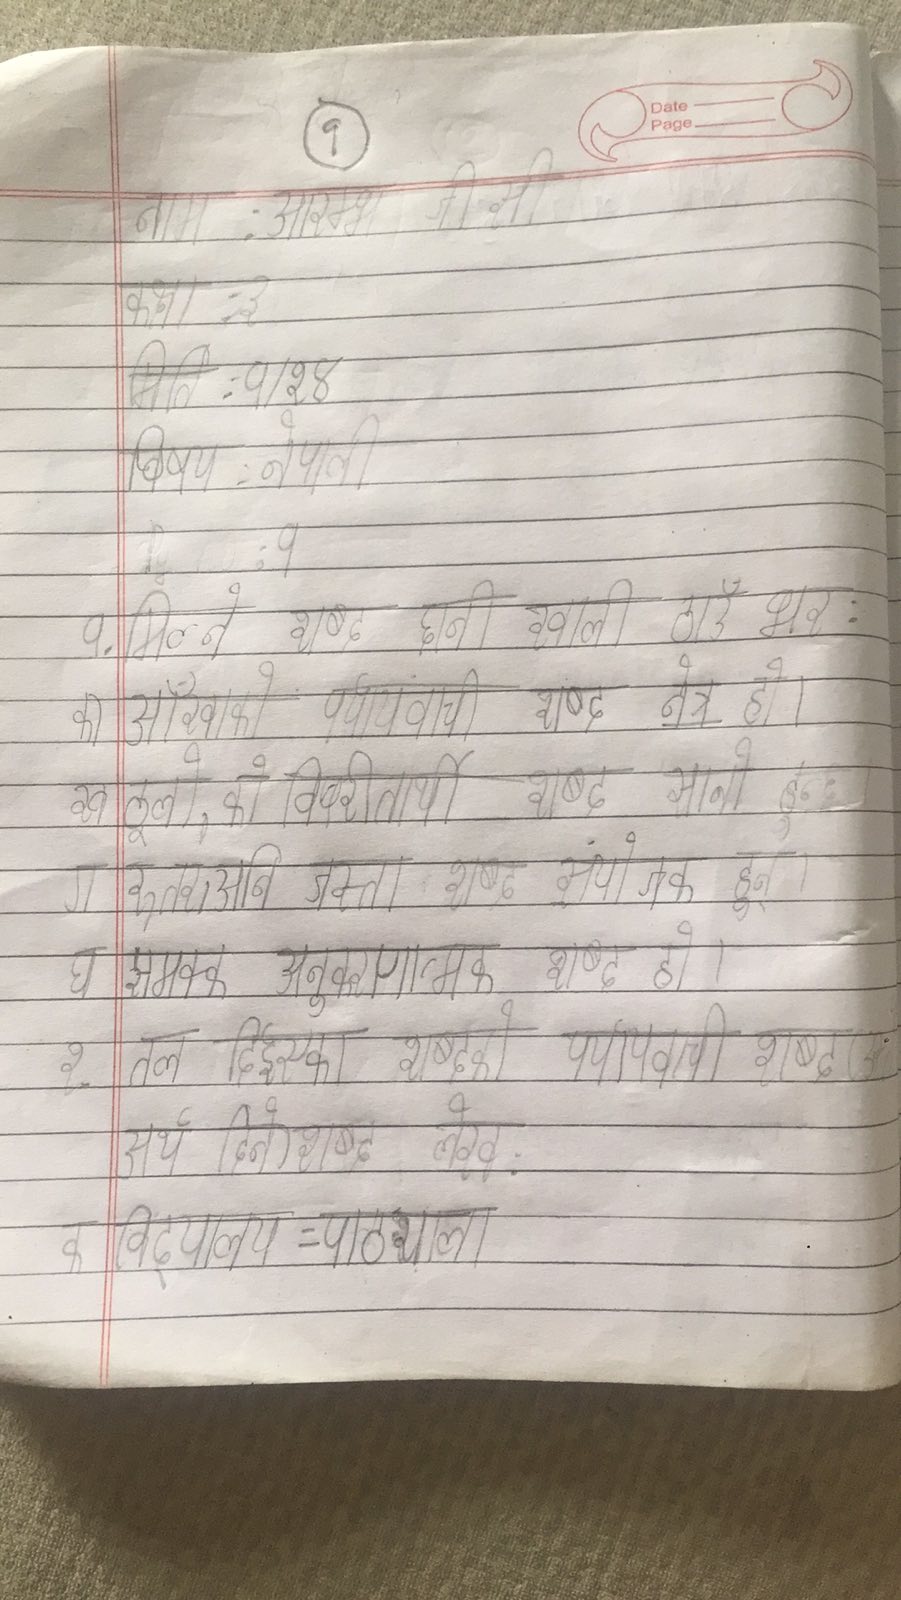 १
Date
Page
नाम : आरम्भ जी.सी
कक्षा :- ३
मिति :- १/२४
विषय :- नेपाली
: १
१. मिल्ने शब्द छानी खाली ठाउँ भर :
क आँखाको पर्यायवाची शब्द नेत्र हो ।
ख ठूलो, को विपरीतार्थी शब्द सानो हुन्छ
ग कतर, अनि जस्ता शब्द संयोजक हुन् ।
घ झमक्क अनुकरणात्मक शब्द हो ।
२. तल दिईएका शब्दको पर्यायवाची शब्द
अर्थ दिने) शब्द लेख :
क विद्यालय = पाठशाला